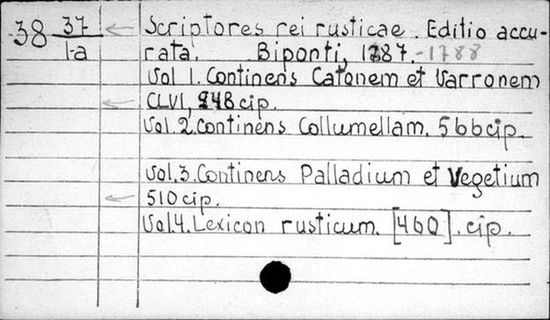 38 37/1-a Scriptores rei rusticae. Editio accu-
rata. Biponti, 1787.-1788
Vol 1. Continens Catonem et Varronem
CLVI, 248 cip.
Vol. 2. Continens Collumellam. 566 cip.
Vol. 3. Continens Palladium et Vegetium
510 cip.
Vol. 4. Lexicon rusticum. [460]. cip.